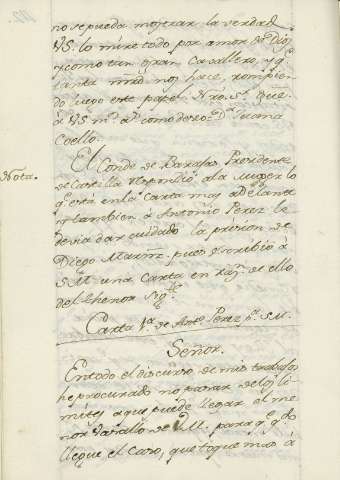 no se pueda mejorar la verdad
VS. lo mire todo por amor de Dios
y como tan gran Cavallero, y q
tanta mrd nos hace, rompien
do luego este papel. Nro. Sr. gue.
à VS. ms. as. como deseo. Da. Juana
Coello.
Nota.
El Conde de Barajas Presidente
de Castilla respondiò a la Muger lo
q. està en la carta mas adelante
y tambien à Antonio Perez le
devia dar cuidado la prision de
Diego Martnz, pues escribio à
S. M. una Carta en razn. de ello
del thenor sigte.
Carta pa. de Anto. Perez pa. S.M.
Señor.
En todo el discurso de mis trabajos
he procurado no pasar de los li-
mites a que puede llegar el me
nor vasallo de V.M. para q. qdo.
llegue el caso, que toque mas à